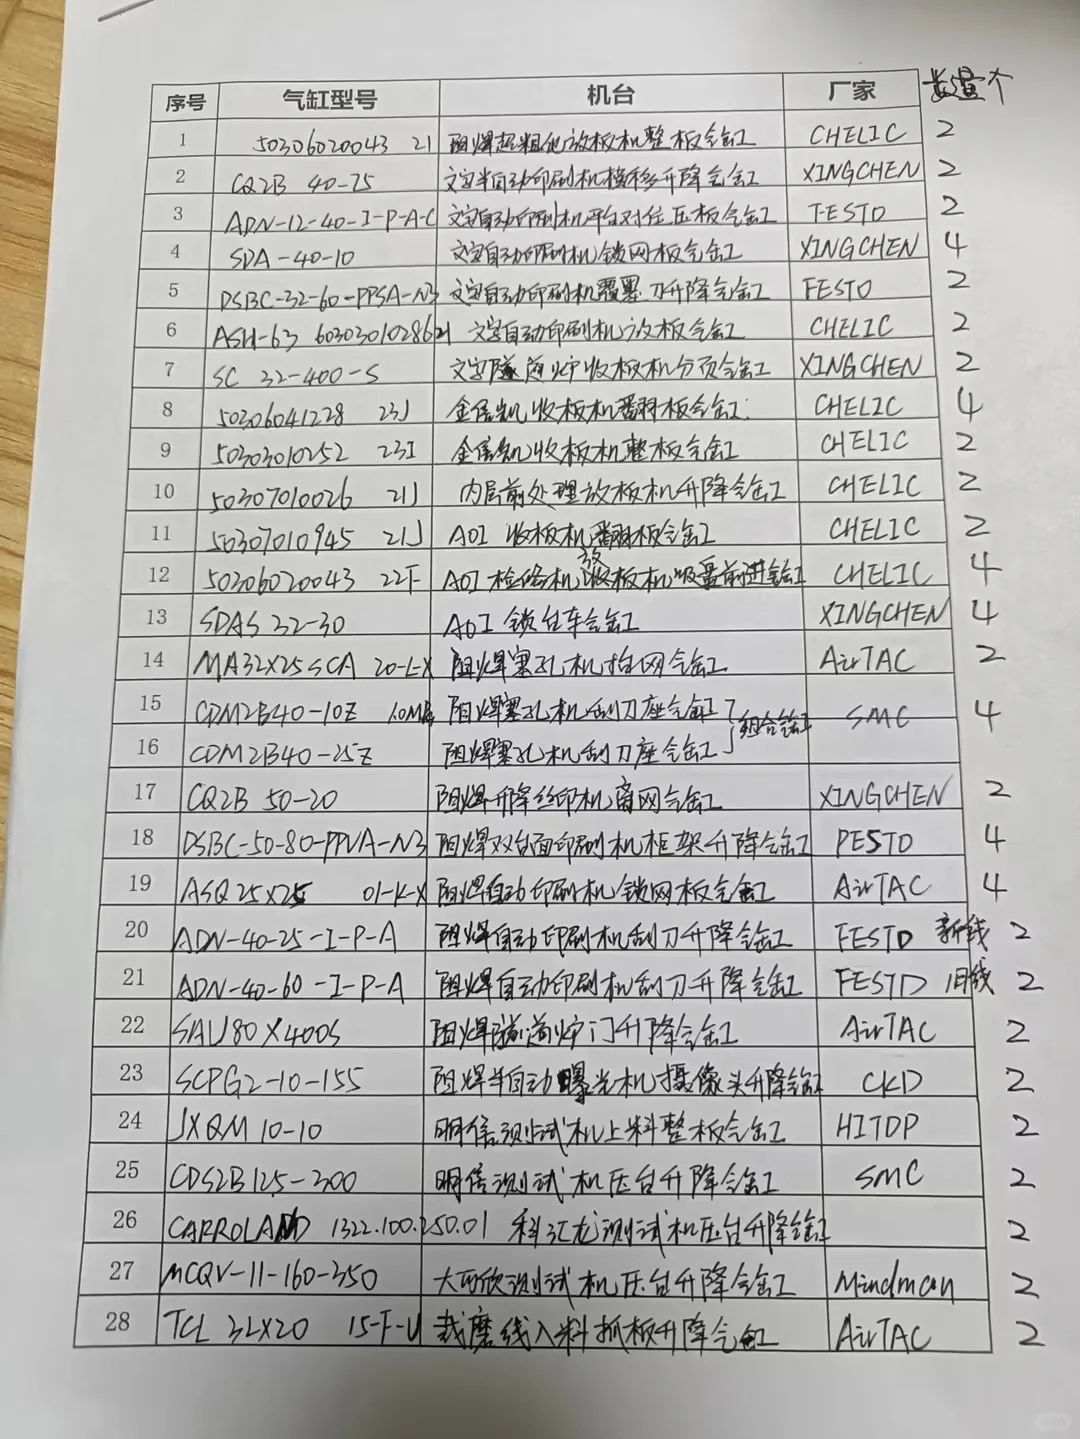 序号 气缸型号 机台 厂家 数量个
1 50306020043 21 阻焊超粗化放板机整板气缸 CHELIC 2
2 CQ2B 40-75 文字半自动印刷机横移升降气缸 XINGCHEN 2
3 ADN-12-40-I-P-A-C 文字自动印刷机平台对位压板气缸 FESTO 2
4 SDA-40-10 文字自动印刷机锁网板气缸 XINGCHEN 4
5 DSBC-32-60-PPSA-N3 文字自动印刷机覆墨刀升降气缸 FESTO 2
6 ASH-63 6030301028621 文字自动印刷机放板气缸 CHELIC 2
7 SC 32-400-S 文字隧道炉收板机分页气缸 XINGCHEN 2
8 50306041228 23J 金信机收板机翻板气缸 CHELIC 4
9 50303010252 23I 金信机收板机整板气缸 CHELIC 2
10 50307010026 21J 内层前处理放板机升降气缸 CHELIC 2
11 50307010945 21J AOI 收板机翻板气缸 CHELIC 2
12 50306020043 22F AOI 检修机放收板机吸盘前进气缸 CHELIC 4
13 SDAS 32-30 AOI 锁住车气缸 XINGCHEN 4
14 MA32X25SCA 20-L-X 阻焊塞孔机抬网气缸 AirTAC 2
15 CDM2B40-10Z 1.0MPa 阻焊塞孔机刮刀座气缸 组合气缸 SMC 4
16 CDM2B40-25Z 阻焊塞孔机刮刀座气缸
17 CQ2B 50-20 阻焊升降丝印机离网气缸 XINGCHEN 2
18 DSBC-50-80-PPVA-N3 阻焊双台面印刷机框架升降气缸 FESTO 4
19 ASQ25X25 01-K-X 阻焊自动印刷机锁网板气缸 AirTAC 4
20 ADN-40-25-I-P-A 阻焊自动印刷机刮刀升降气缸 FESTO 新线 2
21 ADN-40-60-I-P-A 阻焊自动印刷机刮刀升降气缸 FESTO 旧线 2
22 SAU80X400S 阻焊隧道炉门升降气缸 AirTAC 2
23 SCPG2-10-155 阻焊半自动曝光机摄像头升降气缸 CKD 2
24 JXQM10-10 明信测试机上料整板气缸 HITOP 2
25 CDS2B125-300 明信测试机压台升降气缸 SMC 2
26 CARROLAND 1322.100.250.01 科汇龙测试机压台升降气缸 2
27 MCQV-11-160-350 大西欣测试机压台升降气缸 Mindman 2
28 TCL 32X20 15-F-U 裁磨线入料抓板升降气缸 AirTAC 2